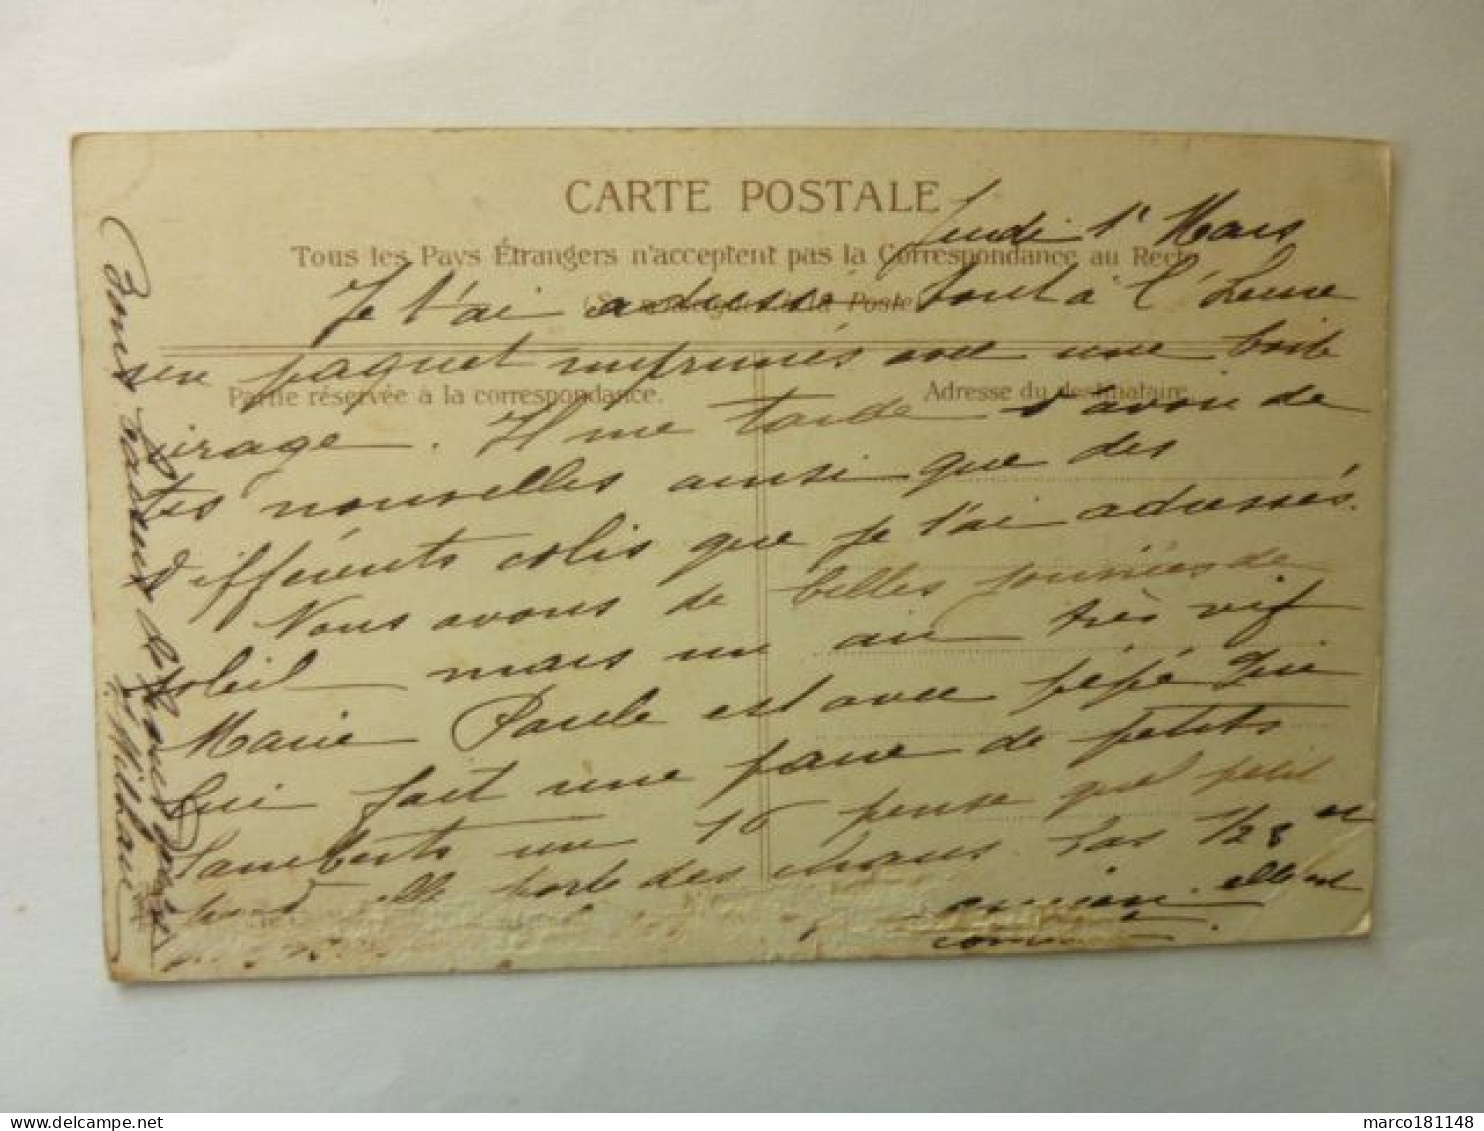 CARTE POSTALE
Jeudi 1r Mars
Tous les Pays Étrangers n'acceptent pas la Correspondance au Recto
Poste
Je t'ai adressé tout à l'heure
un paquet imprimés avec une boite
Partie réservée à la correspondance.
Adresse du destinataire.
cirage. Il me tarde d'avoir de
tes nouvelles ainsi que des
différents colis que je t'ai adressés.
Nous avons de belles journées de
soleil mais un air très vif
Marie Paule est avec pépé qui
lui fait une paire de petits
un 16 pense quel petit
pied elle porte des
elle est
Bons baisers de
marco181148